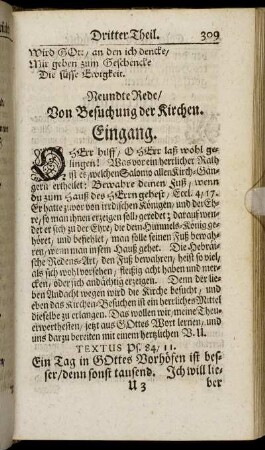 Dritter Theil. 309
Wird GOtt/ an den ich dencke/
Mir geben zum Geschencke
Die süsse Ewigkeit.
Neundte Rede/
Von Besuchung der Kirchen.
Eingang.
O HErr hilff/ O HErr laß wohl ge-
lingen! Was vor ein herrlicher Rath
ist es/ welchen Salomo allen Kirch-Gän-
gern ertheilet: Bewahre deinen Fuß/ wenn
du zum Hauß des HErrn gehest/ Eccl. 4/17.
Er hatte zuvor von irrdischen Königen/ und der Eh-
re/ so man ihnen erzeigen soll/ geredet; darauf wen-
det er sich zu der Ehre/ die dem Himmels-König ge-
höret/ und befiehlet/ man solle seinen Fuß bewah-
ren/ wenn man in sein Hauß gehet. Die Hebräi-
sche Redens-Art, den Fuß bewahren/ heist so viel/
als sich wohl vorsehen/ fleißig acht haben und mer-
cken/ oder sich andächtig erzeigen. Denn der lie-
ben Andacht wegen wird die Kirche besucht/ und
eben das Kirchen-Besuchen ist ein herrliches Mittel
dieselbe zu erlangen. Das wollen wir/ meine Theu-
erwerthesten/ jetzt aus GOttes Wort lernen/ und
uns darzu bereiten mit einem hertzlichen V. U.
TEXTUS Ps. 84/11.
Ein Tag in GOttes Vorhöfen ist bes-
ser/ denn sonst tausend. Ich will lie-
U 3 ber